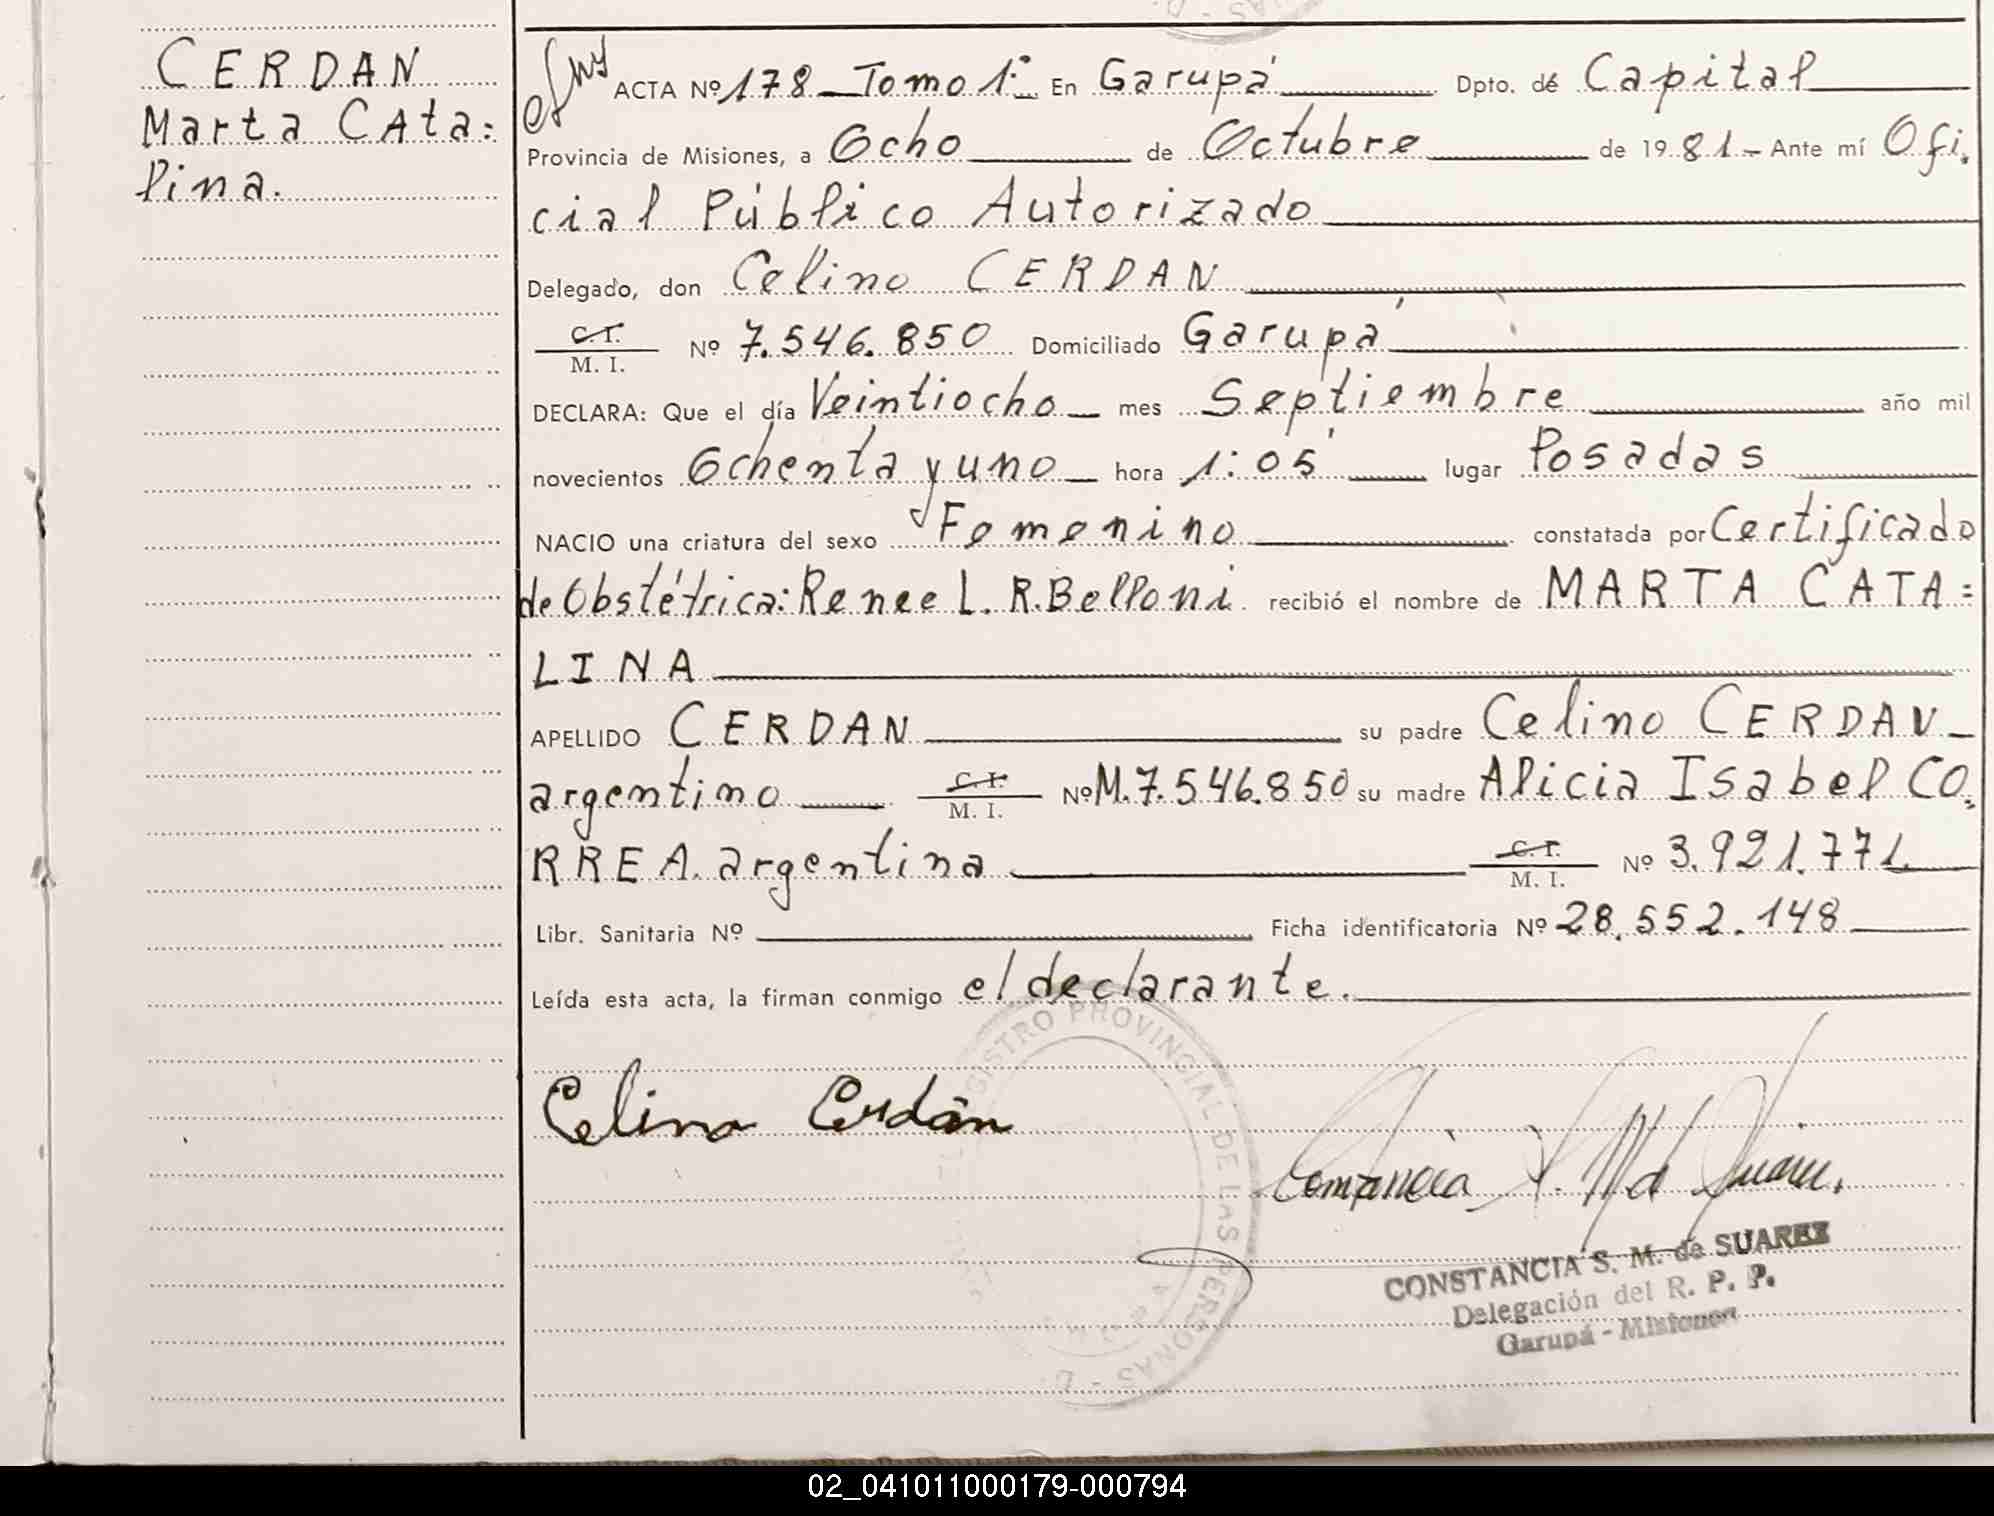 CERDAN
Marta CAta=
lina.
ACTA Nº 178 Tomo 1º En Garupá Dpto. de Capital
Provincia de Misiones, a Ocho de Octubre de 1981 - Ante mí Ofi.
cial Público Autorizado
Delegado, don Celino CERDAN
C. I.
M. I. Nº 7.546.850 Domiciliado Garupá
DECLARA: Que el día Veintiocho mes Septiembre año mil
novecientos Ochenta y uno hora 1:05' lugar Posadas
NACIO una criatura del sexo Femenino constatada por Certificado
de Obstétrica: Renee L. R. Belloni recibió el nombre de MARTA CATA=
LINA
APELLIDO CERDAN su padre Celino CERDAN
argentino C. I. M. I. Nº M.7.546.850 su madre Alicia Isabel CO.
RREA. argentina C. I. M. I. Nº 3.921.771
Libr. Sanitaria Nº Ficha identificatoria Nº 28.552.148
Leída esta acta, la firman conmigo el declarante.
REGISTRO PROVINCIAL DE LAS PERSONAS
Celino Cerdán
Constancia S. M. de Suarez.
CONSTANCIA S. M. de SUAREZ
Delegación del R. P. P.
Garupá - Misiones
02_041011000179-000794